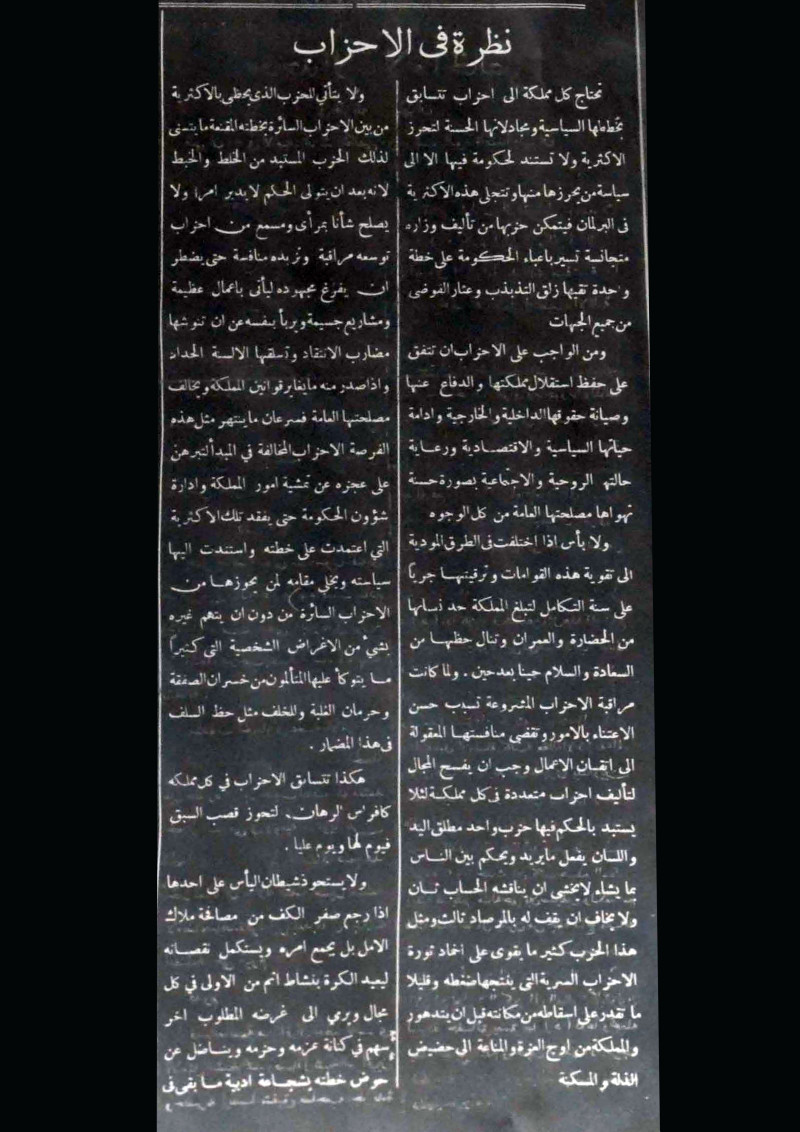 نظرة فى الاحزاب
تحتاج كل مملكة الى احزاب تتسابق
بخططها السياسية ومجادلاتها الحسنة لتحرز
الاكثرية ولا تستند لحكومة فيها الا الى
سياسة من يحرزها منها وتتجلى هذه الاكثرية
فى البرلمان فيتمكن حزبها من تأليف وزاره
متجانسة تسير باعباء الحكومة على خطة
واحدة تقيها زلق التذبذب وعثار الفوضى
من جميع الجهات
ومن الواجب على الاحزاب ان تتفق
على حفظ استقلال مملكتها والدفاع عنها
وصيانة حقوقها الداخلية والخارجية وادامة
حياتها السياسية والاقتصادية ورعاية
حالتها الروحية والاجتماعية بصورة حسنة
تهواها مصلحتها العامة من كل الوجوه
ولا بأس اذا اختلفت فى الطرق المودية
الى تقوية هذه القوامات وترقيتها جرياً
على سنة التكامل لتبلغ المملكة حد نسابها
من الحضارة والعمران وتنال حظها من
السعادة والسلام حينا بعد حين . ولما كانت
مراقبة الاحزاب المشروعة تسبب حسن
الاعتناء بالامور وتقضى منافستها المعقولة
الى اتقان الاعمال وجب ان يفسح المجال
لتأليف احزاب متعددة فى كل مملكة لئلا
يستبد بالحكم فيها حزب واحد مطلق اليد
واللسان يفعل ما يريد ويحكم بين الناس
بما يشاء لا يخشى ان يناقشه الحساب ثان
ولا يخاف ان يقف له بالمرصاد ثالث ومثل
هذا الحزب كثير ما يقوى على اخماد ثورة
الاحزاب السرية التى ينتجها ضغطه وقليلا
ما تقدر على اسقاطه من مكانته قبل ان يتدهور
والمملكة من اوج العزة والمناعة الى حضيض
الذلة والمسكنة
ولا يتأتي للحزب الذى يحظى بالاكثرية
من بين الاحزاب السائرة بخطته المقنعة ما يتسنى
لذلك الحزب المستبد من الخلط والخبط
لانه بعد ان يتولى الحكم لا يدير امرا ولا
يصلح شأنا بمرأى ومسمع من احزاب
توسعه مراقبة وتزيده منافسة حتى يضطر
ان يفرغ مجهوده ليأتى باعمال عظيمة
ومشاريع جسيمة ويربأ بنفسه عن ان تنوشها
مضارب الانتقاد وتسلقها الالسنة الحداد
واذا صدر منه ما يغاير قوانين المملكة ويخالف
مصلحتها العامة فسرعان ما ينتهز مثل هذه
الفرصة الاحزاب المخالفة في المبدأ لتبرهن
على عجزه عن تمشية امور المملكة وادارة
شؤون الحكومة حتى يفقد تلك الاكثرية
التي اعتمدت على خطته واستندت اليها
سياسته ويخلي مقامه لمن يحوزها من
الاحزاب السائرة من دون ان يتهم غيره
بشيء من الاغراض الشخصية التى كثيراً
ما يتوكأ عليها المتألمون من خسران الصفقة
وحرمان الغلبة وللخلف مثل حظ السلف
فى هذا المضمار .
هكذا تتسابق الاحزاب في كل مملكه
كافراس الرهان . لتحوز قصب السبق
فيوم لها ويوم عليا .
ولا يستحوذ شيطان اليأس على احدها
اذا رجع صفر الكف من مصالحة ملاك
الامل بل يجمع امره ويستكمل نقصانه
ليعيد الكرة بنشاط اتم من الاولى في كل
مجال ويرمي الى غرضه المطلوب اخر
سهم في كنانة عزمه وحزمه ويناضل عن
حوض خطته بشجاعة ادبية ما بقى فى